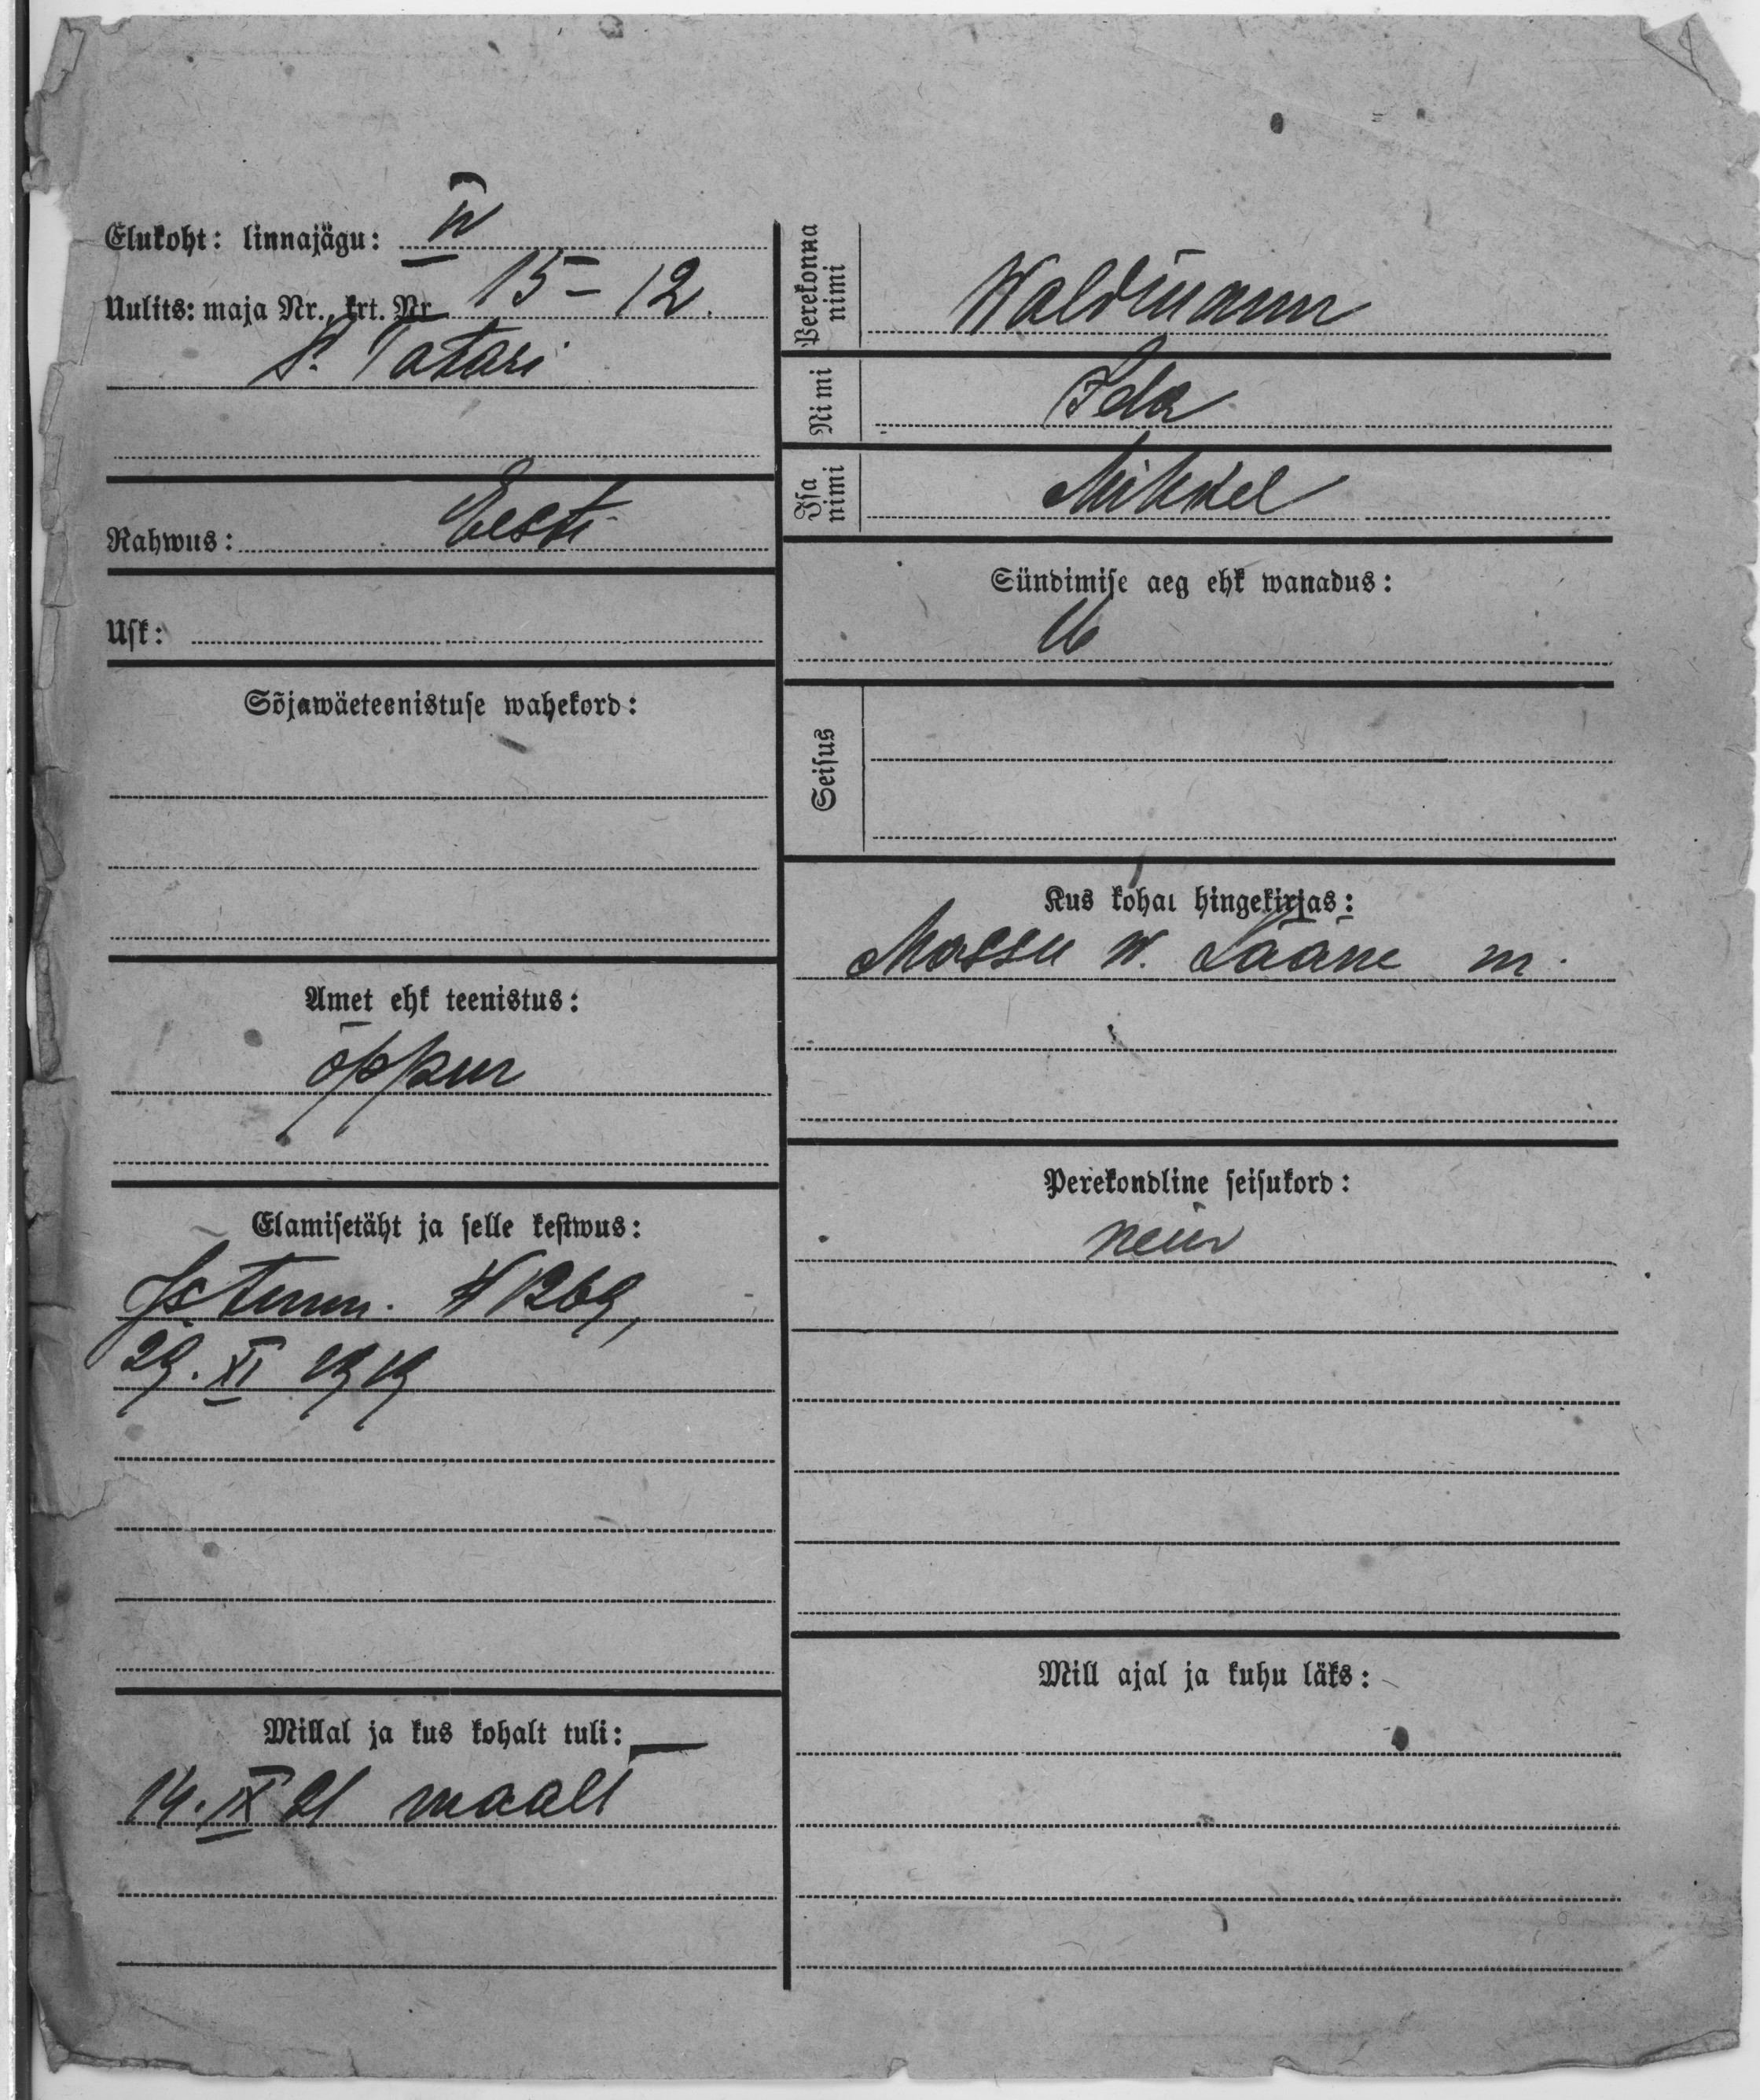 Elukoht: linnajägu: IV
Uulits: maja Nr., krt. Nr 15 – 12.
S. Tatari
Rahwus: Eesti
Usk:
Sõjawäeteenistuse wahekord:
Amet ehk teenistus:
õppur
Elamisetäht ja selle kestwus:
Istunn. N 1269,
29. XI 1919
Millal ja kus kohalt tuli:
14. IX 21 maalt
Perekonna nimi
Waldmann
Nimi
Ida
Isa nimi
Mihkel
Sündimise aeg ehk wanadus:
16
Seisus
Kus kohal hingekirjas:
Massu w. Lääne m.
Perekondline seisukord:
neiu
Mill ajal ja kuhu läks: